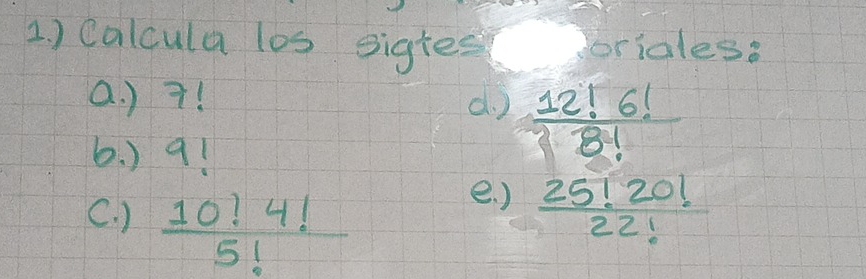 1.) Calcula los sigtes oriales:
a.) 7!
b.) 9!
c.) 10! 4!
5!
d.) 12! 6!
8!
e.) 25! 20!
22!